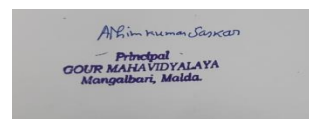 Kumar Sarkar
Principal
GOUR MAHAVIDYALAYA
Mangalbari, Malda.